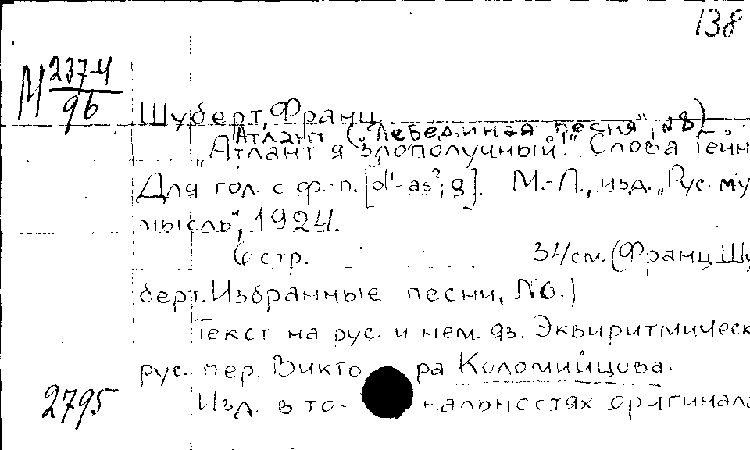 138
М 237-4
96
Шуберт, Франц.
Атлант ("Лебединая песня", №8).
"Атлант я злополучный." Слова Гейн
Для гол. с ф.-п. [d¹-as²; g]. М.-Л., изд. „Рус. му
мысль", 1924.
6 стр. 34 см. (Франц Шу
берт. Избранные песни, №6.)
Текст на рус. и нем. яз. Эквиритмическ
рус. пер. Викто ра Коломийцова.
2795 Изд. в то- нальностях оригинала